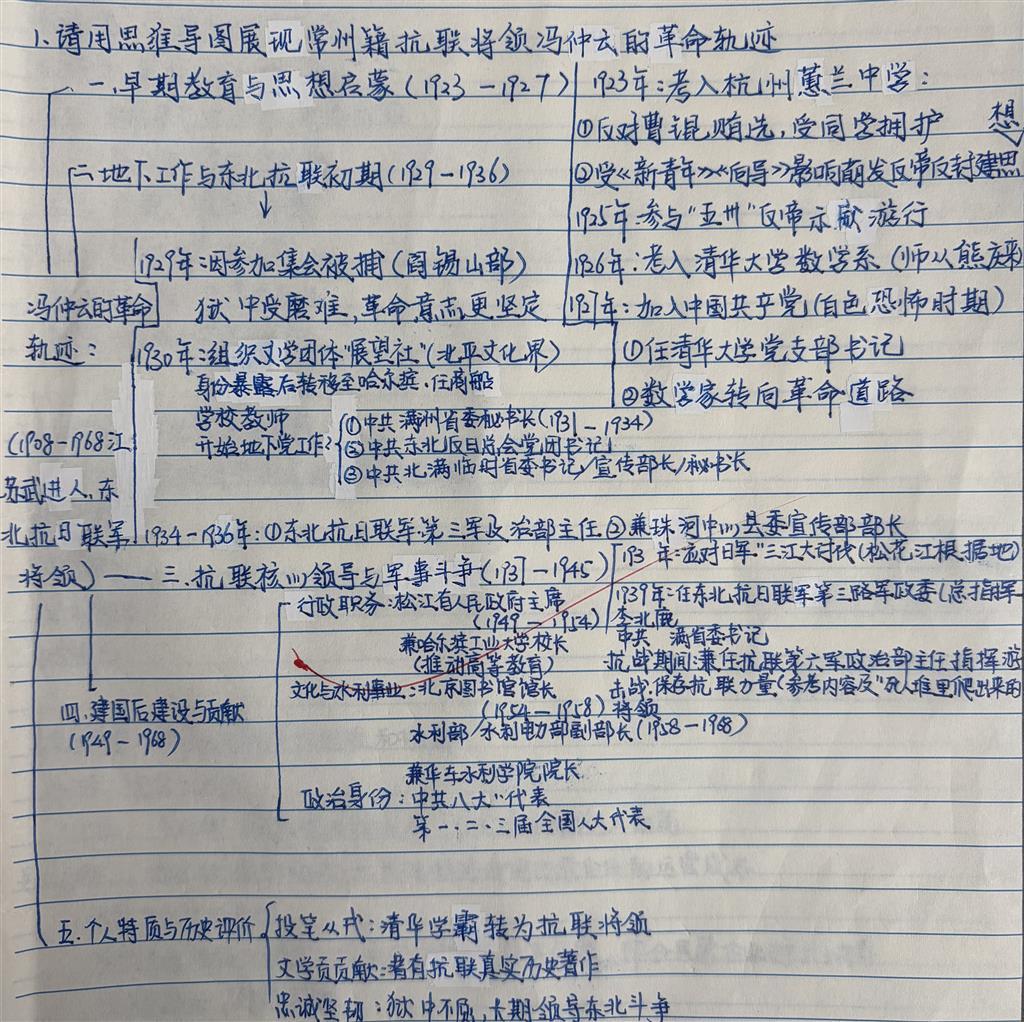 1、请用思维导图展现常州籍抗联将领冯仲云的革命轨迹
一、早期教育与思想启蒙(1923-1927)
1923年:考入杭州蕙兰中学:
①反对曹锟贿选,受同学拥护
②受《新青年》《向导》影响萌发反帝反封建思想
1925年:参与"五卅"反帝示威游行
1926年:考入清华大学数学系(师从熊庆来)
1927年:加入中国共产党(白色恐怖时期)
①任清华大学党支部书记
②数学家转向革命道路
二地下工作与东北抗联初期(1929-1936)
↓
1929年:因参加集会被捕(阎锡山部)
狱中受磨难,革命意志更坚定
冯仲云的革命
轨迹:
(1908-1968江
苏武进人,东
北抗日联军
将领)
1930年:组织文学团体"展望社"(北平文化界)
身份暴露后转移至哈尔滨,任商船
学校教师
开始地下党工作:
①中共满州省委秘书长(1931-1934)
②中共东北反日总会党团书记
③中共北满临时省委书记/宣传部长/秘书长
1934-1936年:①东北抗日联军第三军政治部主任②兼珠河中心县委宣传部部长
三、抗联核心领导与军事斗争(1937-1945)
193 年:应对日军"三江大讨伐(松花江根据地)
1939年:任东北抗日联军第三路军政委(总指挥
李兆麟
中共 满省委书记
抗战期间:兼任抗联第六军政治部主任指挥游
击战,保存抗联力量(参考内容及"死人堆里爬出来的
将领
四、建国后建设与贡献
(1949-1968)
行政职务:松江省人民政府主席
(1949-1954)
兼哈尔滨工业大学校长
(推动高等教育)
文化与水利事业:北京图书馆馆长
(1954-1958)
水利部/水利电力部副部长(1958-1968)
兼华东水利学院院长
政治身份:中共八大"代表
第一、二、三届全国人大代表
五、个人特质与历史评价
投笔从戎:清华学霸转为抗联将领
文学贡贡献:著有抗联真实历史著作
忠诚坚韧:狱中不屈,长期领导东北斗争